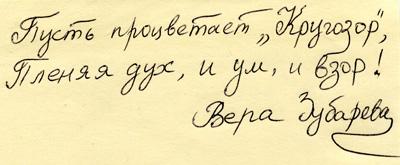 Пусть процветает „Кругозор",
Пленяя дух, и ум, и взор!
Вера Зубарева